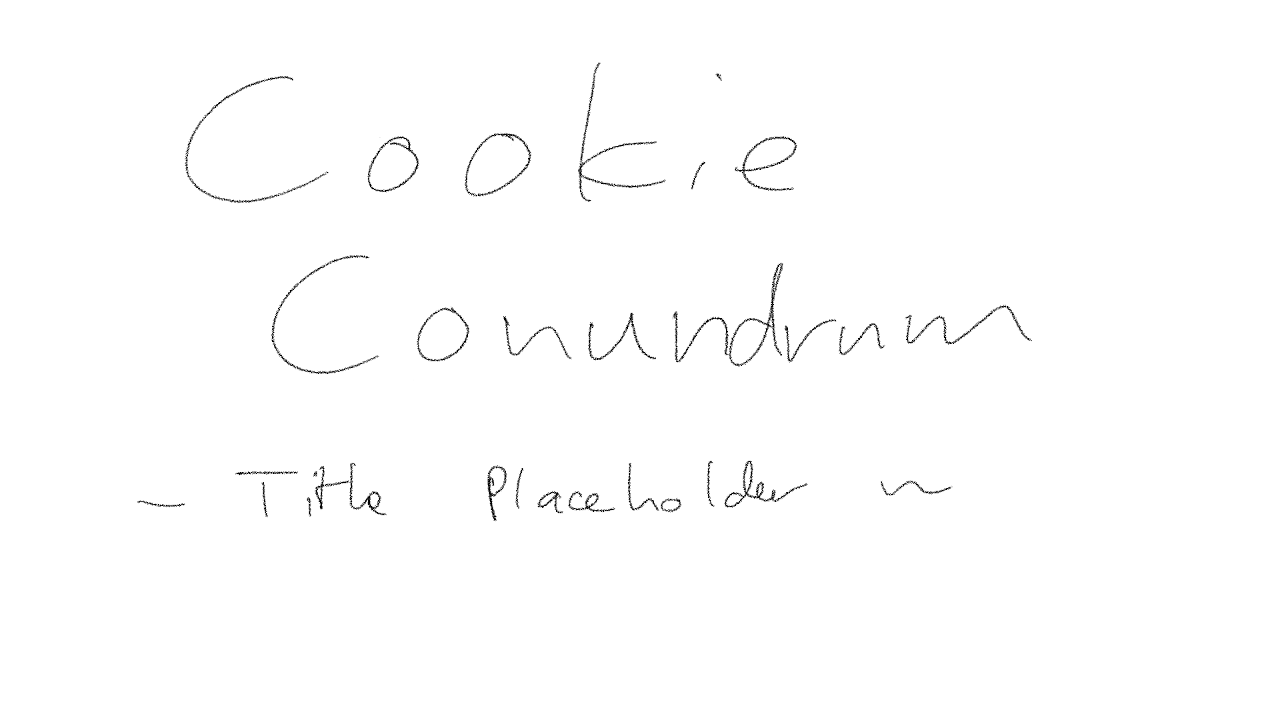 Cookie
Conundrum
~ Title Placeholder ~